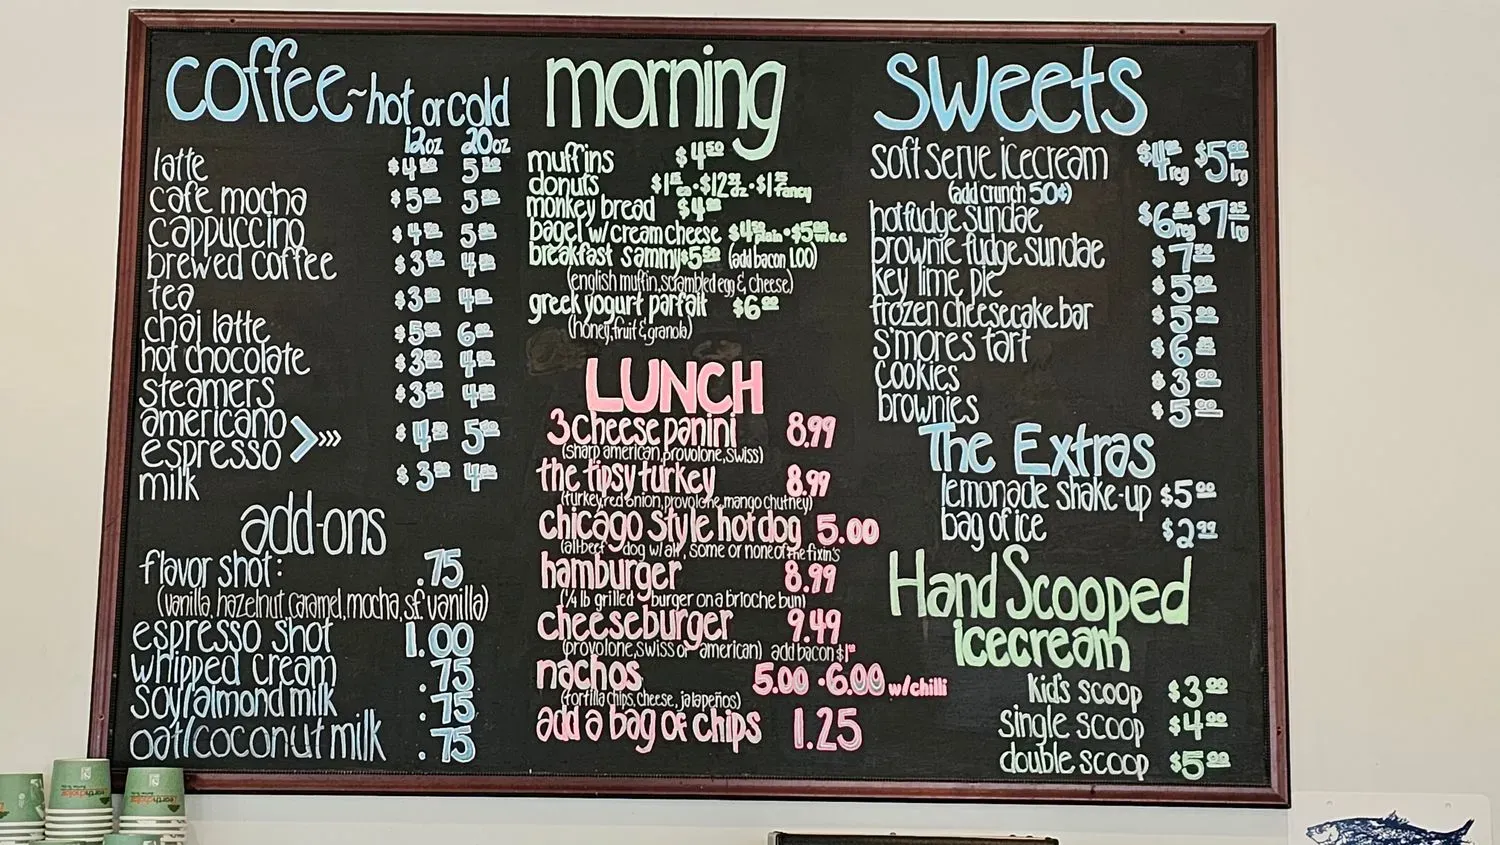 coffee~hot or cold
12oz 20oz
latte $4 5
cafe mocha $5 5
cappuccino $4 5
brewed coffee $3 4
tea $3 4
chai latte $5 6
hot chocolate $3 4
steamers $3 4
americano
espresso $4 5
milk $3 4
add-ons
flavor shot: .75
(vanilla, hazelnut, caramel, mocha, s.f. vanilla)
espresso shot 1.00
whipped cream .75
soy/almond milk .75
oat/coconut milk .75
morning
muffins $4 50
donuts $1 $12 dz $1 fancy
monkey bread $4
bagel w/ cream cheese $4 plain • $5 w/c.c
breakfast sammy $5 50 (add bacon 1.00)
(english muffin, scrambled egg & cheese)
greek yogurt parfait $6 00
(honey, fruit & granola)
LUNCH
3 cheese panini 8.99
(sharp american, provolone, swiss)
the tipsy turkey 8.99
(turkey, red onion, provolone, mango chutney)
chicago style hot dog 5.00
(all beef dog w/ all, some or none of the fixin's
hamburger 8.99
(1/4 lb grilled burger on a brioche bun)
cheeseburger 9.49
(provolone, swiss or american) add bacon $1
nachos 5.00 • 6.00 w/chilli
(tortilla chips, cheese, jalapeños)
add a bag of chips 1.25
sweets
soft serve icecream $4 reg $5 lrg
(add crunch 50¢)
hot fudge sundae $6 reg $7 lrg
brownie fudge sundae $7
key lime pie $5
frozen cheesecake bar $5
s'mores tart $6
cookies $3
brownies $5
The Extras
lemonade shake-up $5 00
bag of ice $2 99
Hand Scooped
icecream
kid's scoop $3 00
single scoop $4 00
double scoop $5 00